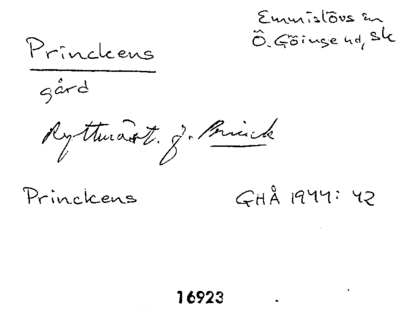 Emmislövs sn
Ö. Göinge hd, Sk
Princkens
gård
Ryttmäst. J. Princk
Princkens GHÅ 1944: 42
16923